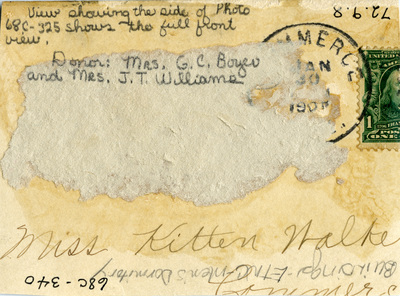 View showing the side of Photo
68C-325 shows the full front
view.
Donor: Mrs. G.C. Boyer
and Mrs. J.T. Williams
72.9.8
MMERCE
JAN
30
UNITED ST
1
ONE
Miss Kitten Walke
Buildings-ETNC-Men's Dormitory
Commerce
68C-340